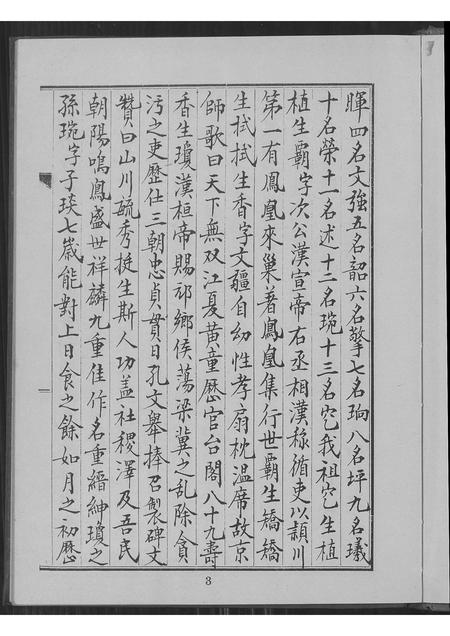 暉四名文強五名韶六名擎七名珦八名坪九名㬢
十名榮十一名述十二名琬十三名它我祖它生植
植生霸字次公漢宣帝右丞相漢称循吏以頴川
第一有鳳凰來巢著鳳凰集行世霸生矯矯
生拭拭生香字文疆自幼性孝扇枕溫席故京
師歌曰天下無双江夏黄童歷官台閣八十九壽
香生瓊漢桓帝賜邟鄉侯蕩梁冀之乱除貪
污之吏歷仕三朝忠貞貫日孔文舉捧召製碑文
贊曰山川毓秀挺生斯人功盖社稷澤及吾民
朝陽鳴鳳盛世祥麟九重佳作名重縉紳瓊之
孫琬字子琰七歲能對上日食之餘如月之初歷
3